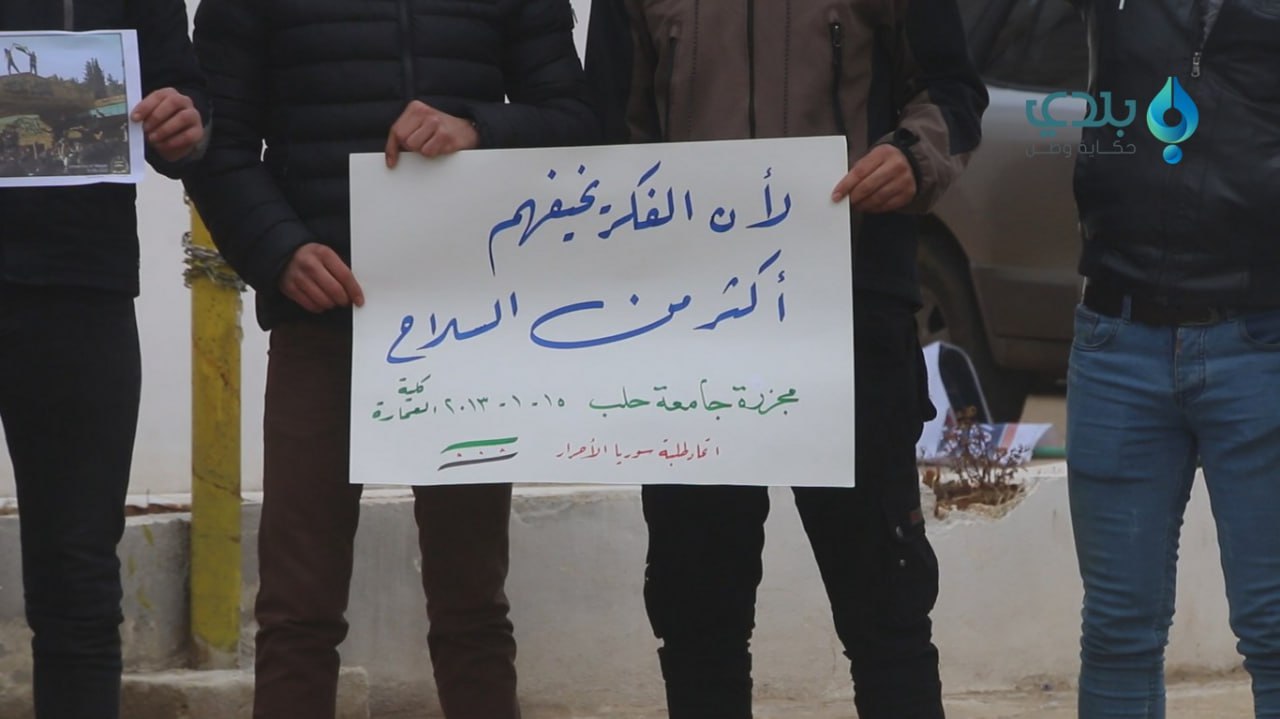 بلدي
حكاية وطن
لأن الفكرة تخيفهم
أكثر من السلاح
مجزرة جامعة حلب ١٥-١-٢٠١٣ كلية العمارة
اتحاد طلبة سوريا الأحرار